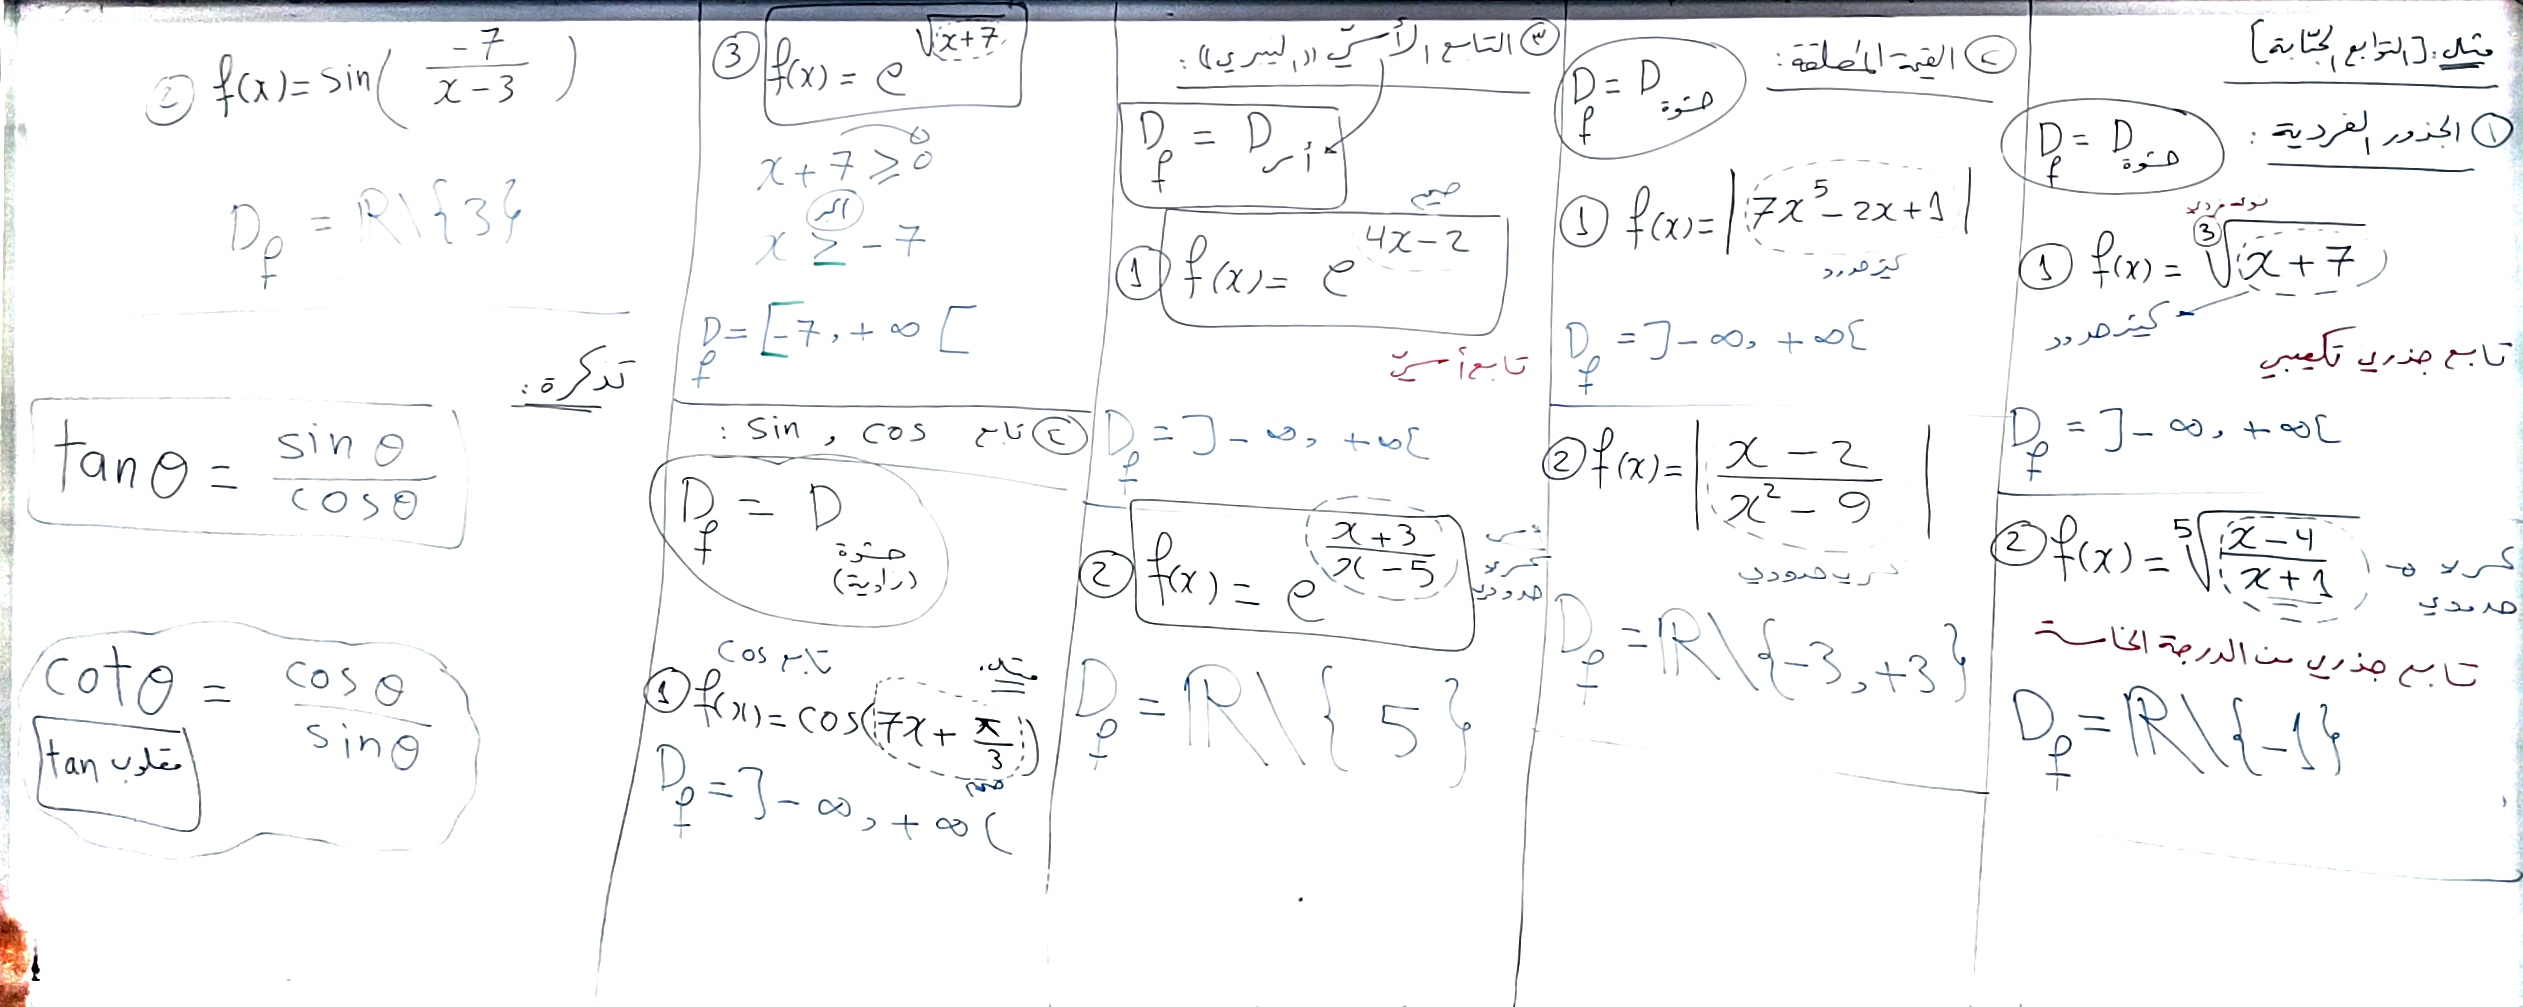 مثال: [التوابع الجذّابة]
① الجذور الفردية :
D_f = D حشوة
① f(x) = ³√(x+7)
كثير حدود
تابع جذري تكعيبي
D_f = ]-∞, +∞[
② f(x) = ⁵√((x-4)/(x+1))
كسر لا حدودي
تابع جذري من الدرجة الخامسة
D_f = ℝ\{-1}
② القيمة المطلقة :
D_f = D حشوة
① f(x) = |7x⁵-2x+1|
كثير حدود
D_f = ]-∞, +∞[
② f(x) = |(x-2)/(x²-9)|
D_f = ℝ\{-3, +3}
③ التابع الأسيّ ((النيبري)) :
D_f = D أس
صحيح
① f(x) = e^(4x-2)
تابع أسيّ
D_f = ]-∞, +∞[
② f(x) = e^((x+3)/(x-5))
أس كسر لا حدودي
D_f = ℝ\{5}
③ f(x) = e^(√(x+7))
x+7 ≥ 0
أكبر
x ≥ -7
D_f = [-7, +∞[
④ تابع sin , cos :
D_f = D حشوة (زاوية)
تابع cos
مثال:
① f(x) = cos(7x + π/3)
D_f = ]-∞, +∞[
② f(x) = sin(-7/(x-3))
D_f = ℝ\{3}
تذكرة :
tan θ = sin θ / cos θ
cot θ = cos θ / sin θ
مقلوب tan